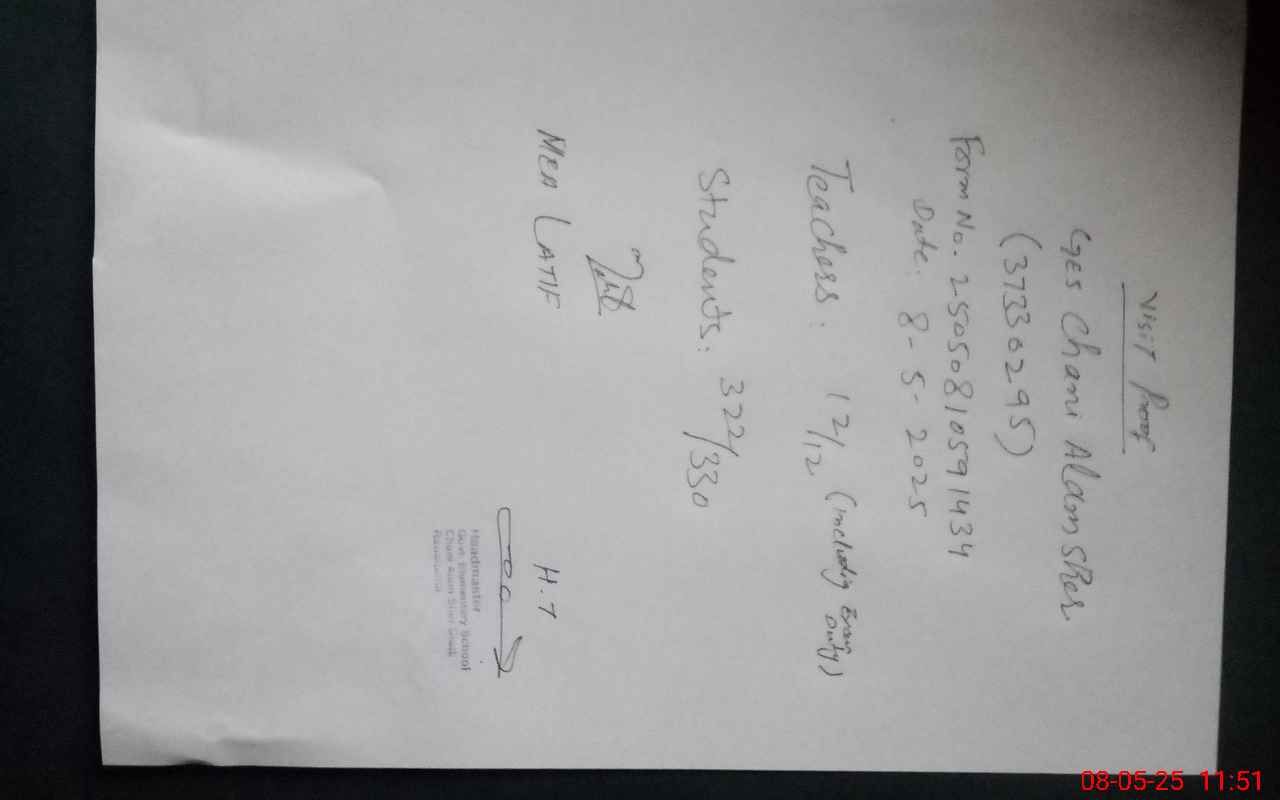 Visit Proof
GES Chani Alam Sher
(37330295)
Form No. 25050810591434
Date: 8-5-2025
Teachers: 12/12 (including Exam Duty)
Students: 322/330
MEA LATIF
H.T
Headmaster
Govt. Elementary School
Chani Alam Sher
Rawalpindi
08-05-25 11:51